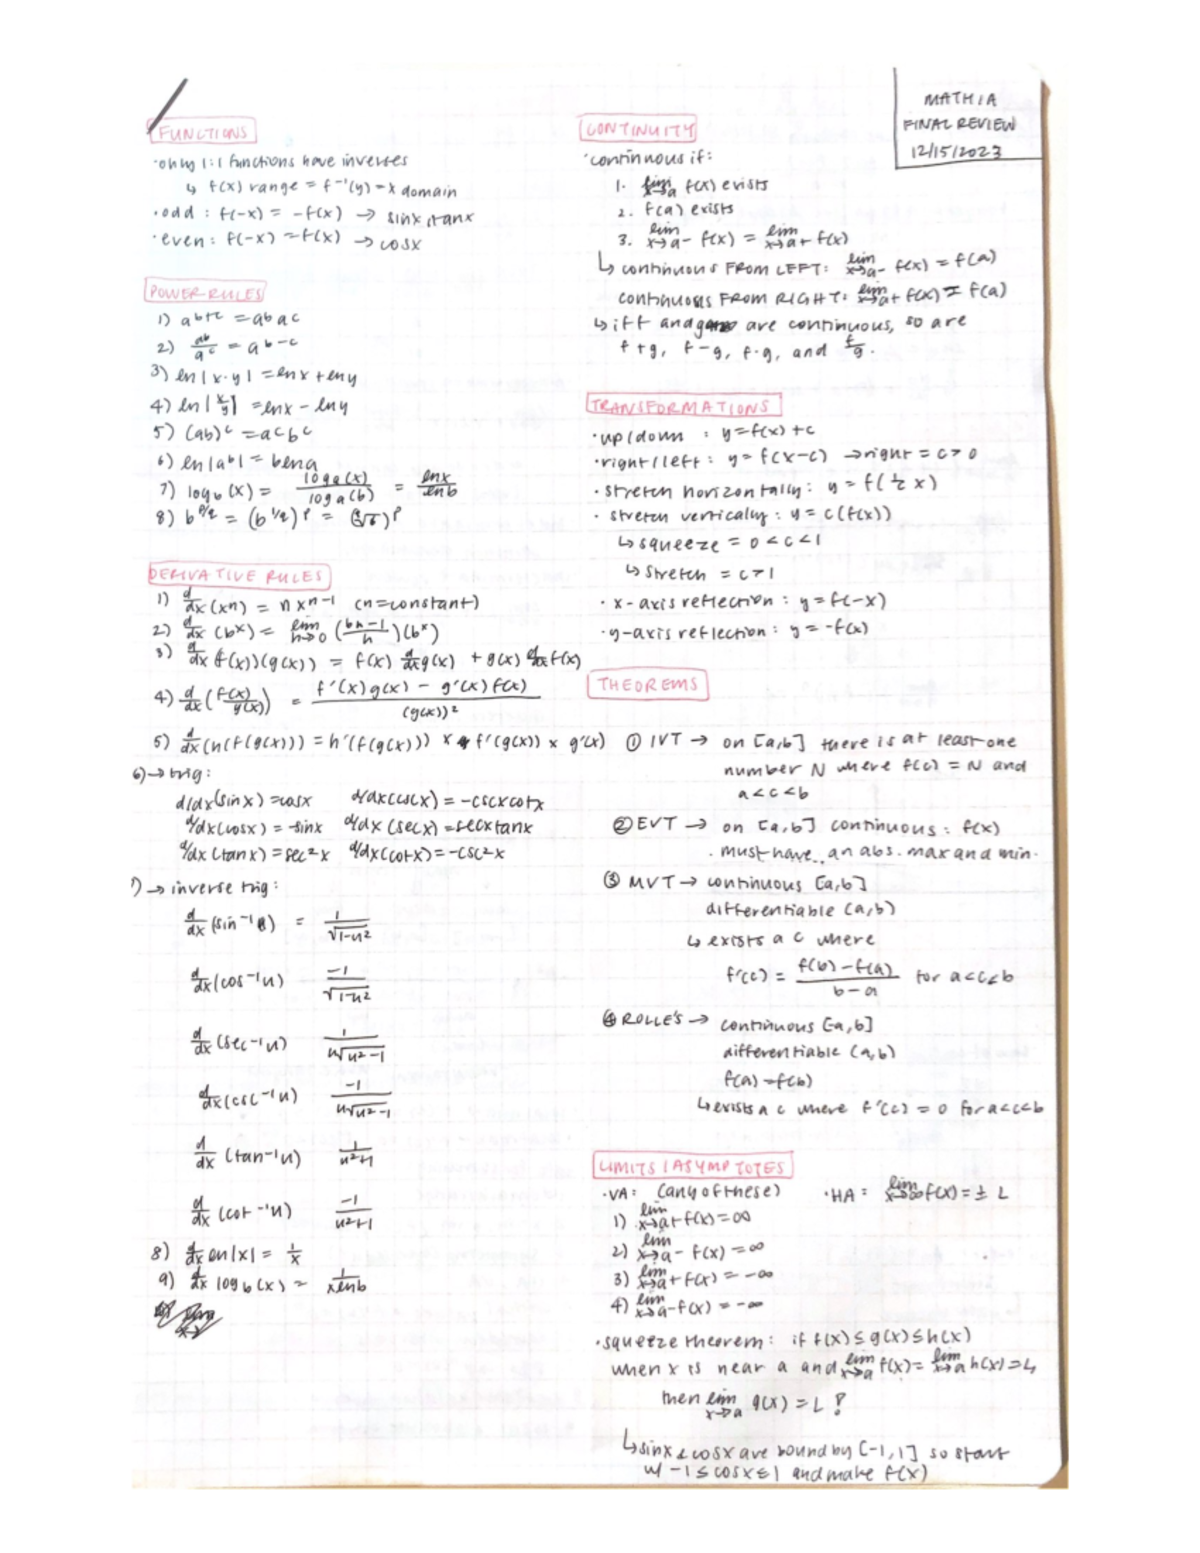 MATH 1A
FINAL REVIEW
12/15/2023
FUNCTIONS
·only 1:1 functions have inverses
↳ f(x) range = f⁻¹(y) = x domain
·odd : f(-x) = -f(x) → sinx, tanx
·even : f(-x) = f(x) → cosx
POWER RULES
1) a^b+c = a^b a^c
2) a^b/a^c = a^b-c
3) ln|x·y| = lnx + lny
4) ln|x/y| = lnx - lny
5) (ab)^c = a^c b^c
6) ln|a^b| = blna
7) log_b(x) = log_a(x)/log_a(b) = lnx/lnb
8) b^p/q = (b^1/q)^p = (q√b)^p
DERIVATIVE RULES
1) d/dx (x^n) = nx^n-1 (n=constant)
2) d/dx (b^x) = lim h→0 (b^h-1/h)(b^x)
3) d/dx (f(x))(g(x)) = f(x) d/dx g(x) + g(x) d/dx f(x)
4) d/dx (f(x)/g(x)) = f'(x)g(x) - g'(x)f(x)/(g(x))²
5) d/dx (h(f(g(x))) = h'(f(g(x))) x f'(g(x)) x g'(x)
6) → trig:
d/dx(sinx) = cosx d/dx(cscx) = -cscxcotx
d/dx(cosx) = -sinx d/dx(secx) = secxtanx
d/dx(tanx) = sec²x d/dx(cotx) = -csc²x
7) → inverse trig:
d/dx (sin⁻¹ ) = 1/√1-u²
d/dx (cos⁻¹u) -1/√1-u²
d/dx (sec⁻¹u) 1/u√u²-1
d/dx (csc⁻¹u) -1/u√u²-1
d/dx (tan⁻¹u) 1/u²+1
d/dx (cot⁻¹u) -1/u²+1
8) d/dx ln|x| = 1/x
9) d/dx log_b(x) = 1/xlnb
CONTINUITY
·continuous if:
1. lim x→a f(x) exists
2. f(a) exists
3. lim x→a- f(x) = lim x→a+ f(x)
↳ continuous FROM LEFT: lim x→a- f(x) = f(a)
continuous FROM RIGHT: lim x→a+ f(x) = f(a)
↳ if f and g are continuous, so are
f+g, f-g, f·g, and f/g.
TRANSFORMATIONS
·up/down : y=f(x)+c
·right/left : y= f(x-c) → right = c>0
·stretch horizontally: y = f(1/c x)
·stretch vertically: y = c(f(x))
↳ squeeze = 0<c<1
↳ stretch = c>1
·x-axis reflection : y=f(-x)
·y-axis reflection : y=-f(x)
THEOREMS
① IVT → on [a,b] there is at least one
number N where f(c) = N and
a<c<b
② EVT → on [a,b] continuous: f(x)
·must have an abs. max and min.
③ MVT → continuous [a,b]
differentiable (a,b)
↳ exists a c where
f'(c) = f(b)-f(a)/b-a for a<c<b
④ ROLLE'S → continuous [a,b]
differentiable (a,b)
f(a)=f(b)
↳ exists a c where f'(c) = 0 for a<c<b
LIMITS/ASYMPTOTES
·VA: (any of these) ·HA: lim x→∞ f(x) = ± L
1) lim x→a+ f(x) = ∞
2) lim x→a- f(x) = ∞
3) lim x→a+ f(x) = -∞
4) lim x→a- f(x) = -∞
·squeeze theorem: if f(x) ≤ g(x) ≤ h(x)
when x is near a and lim x→a f(x) = lim x→a h(x) = L,
then lim x→a g(x) = L !
↳ sinx & cosx are bound by [-1,1] so start
w/ -1≤cosx≤1 and make f(x)